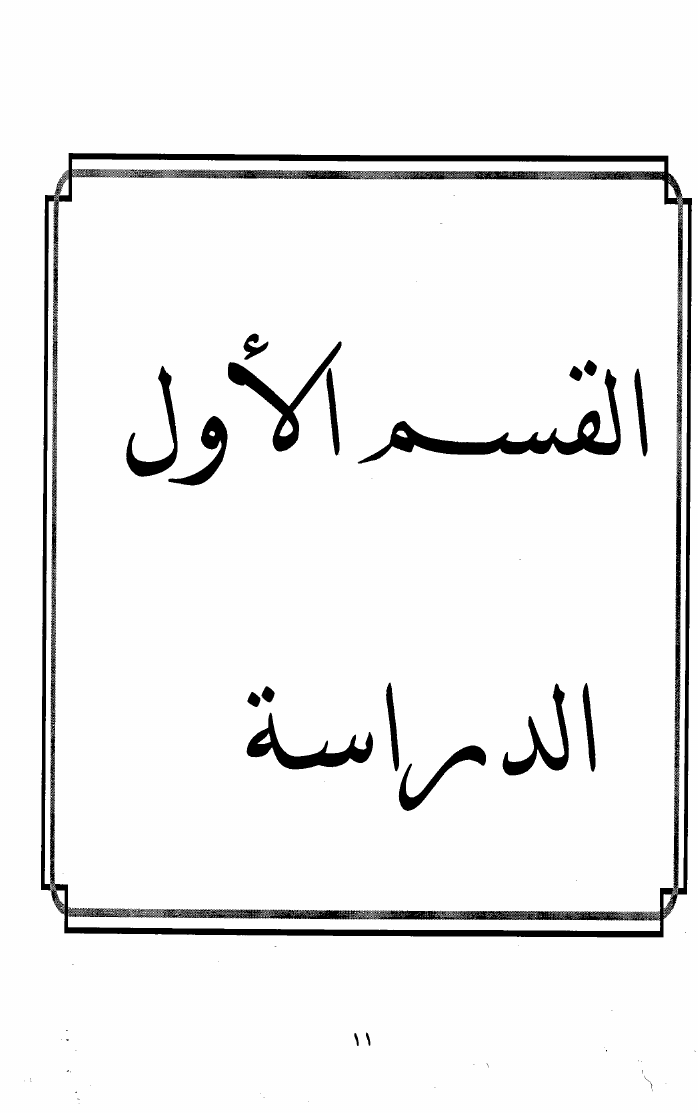 القسم الأول
الدراسة
١١